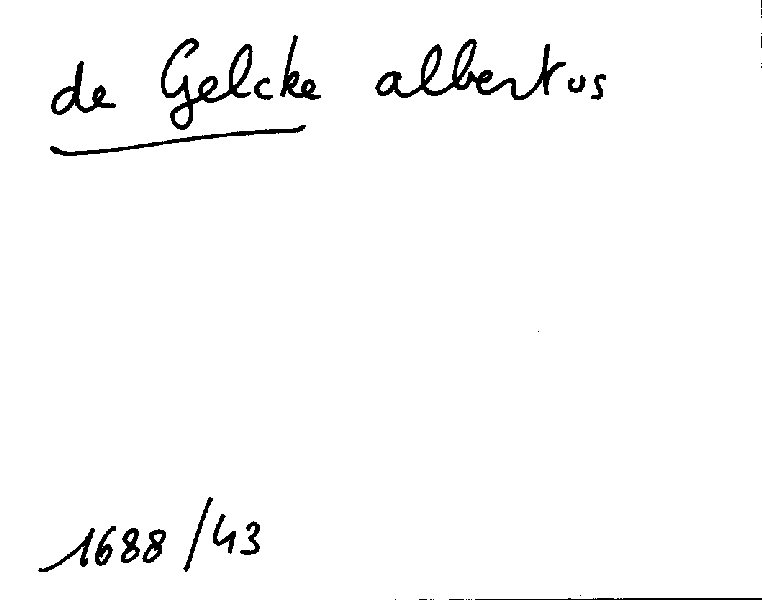 de Gelcke albertus
1688/43